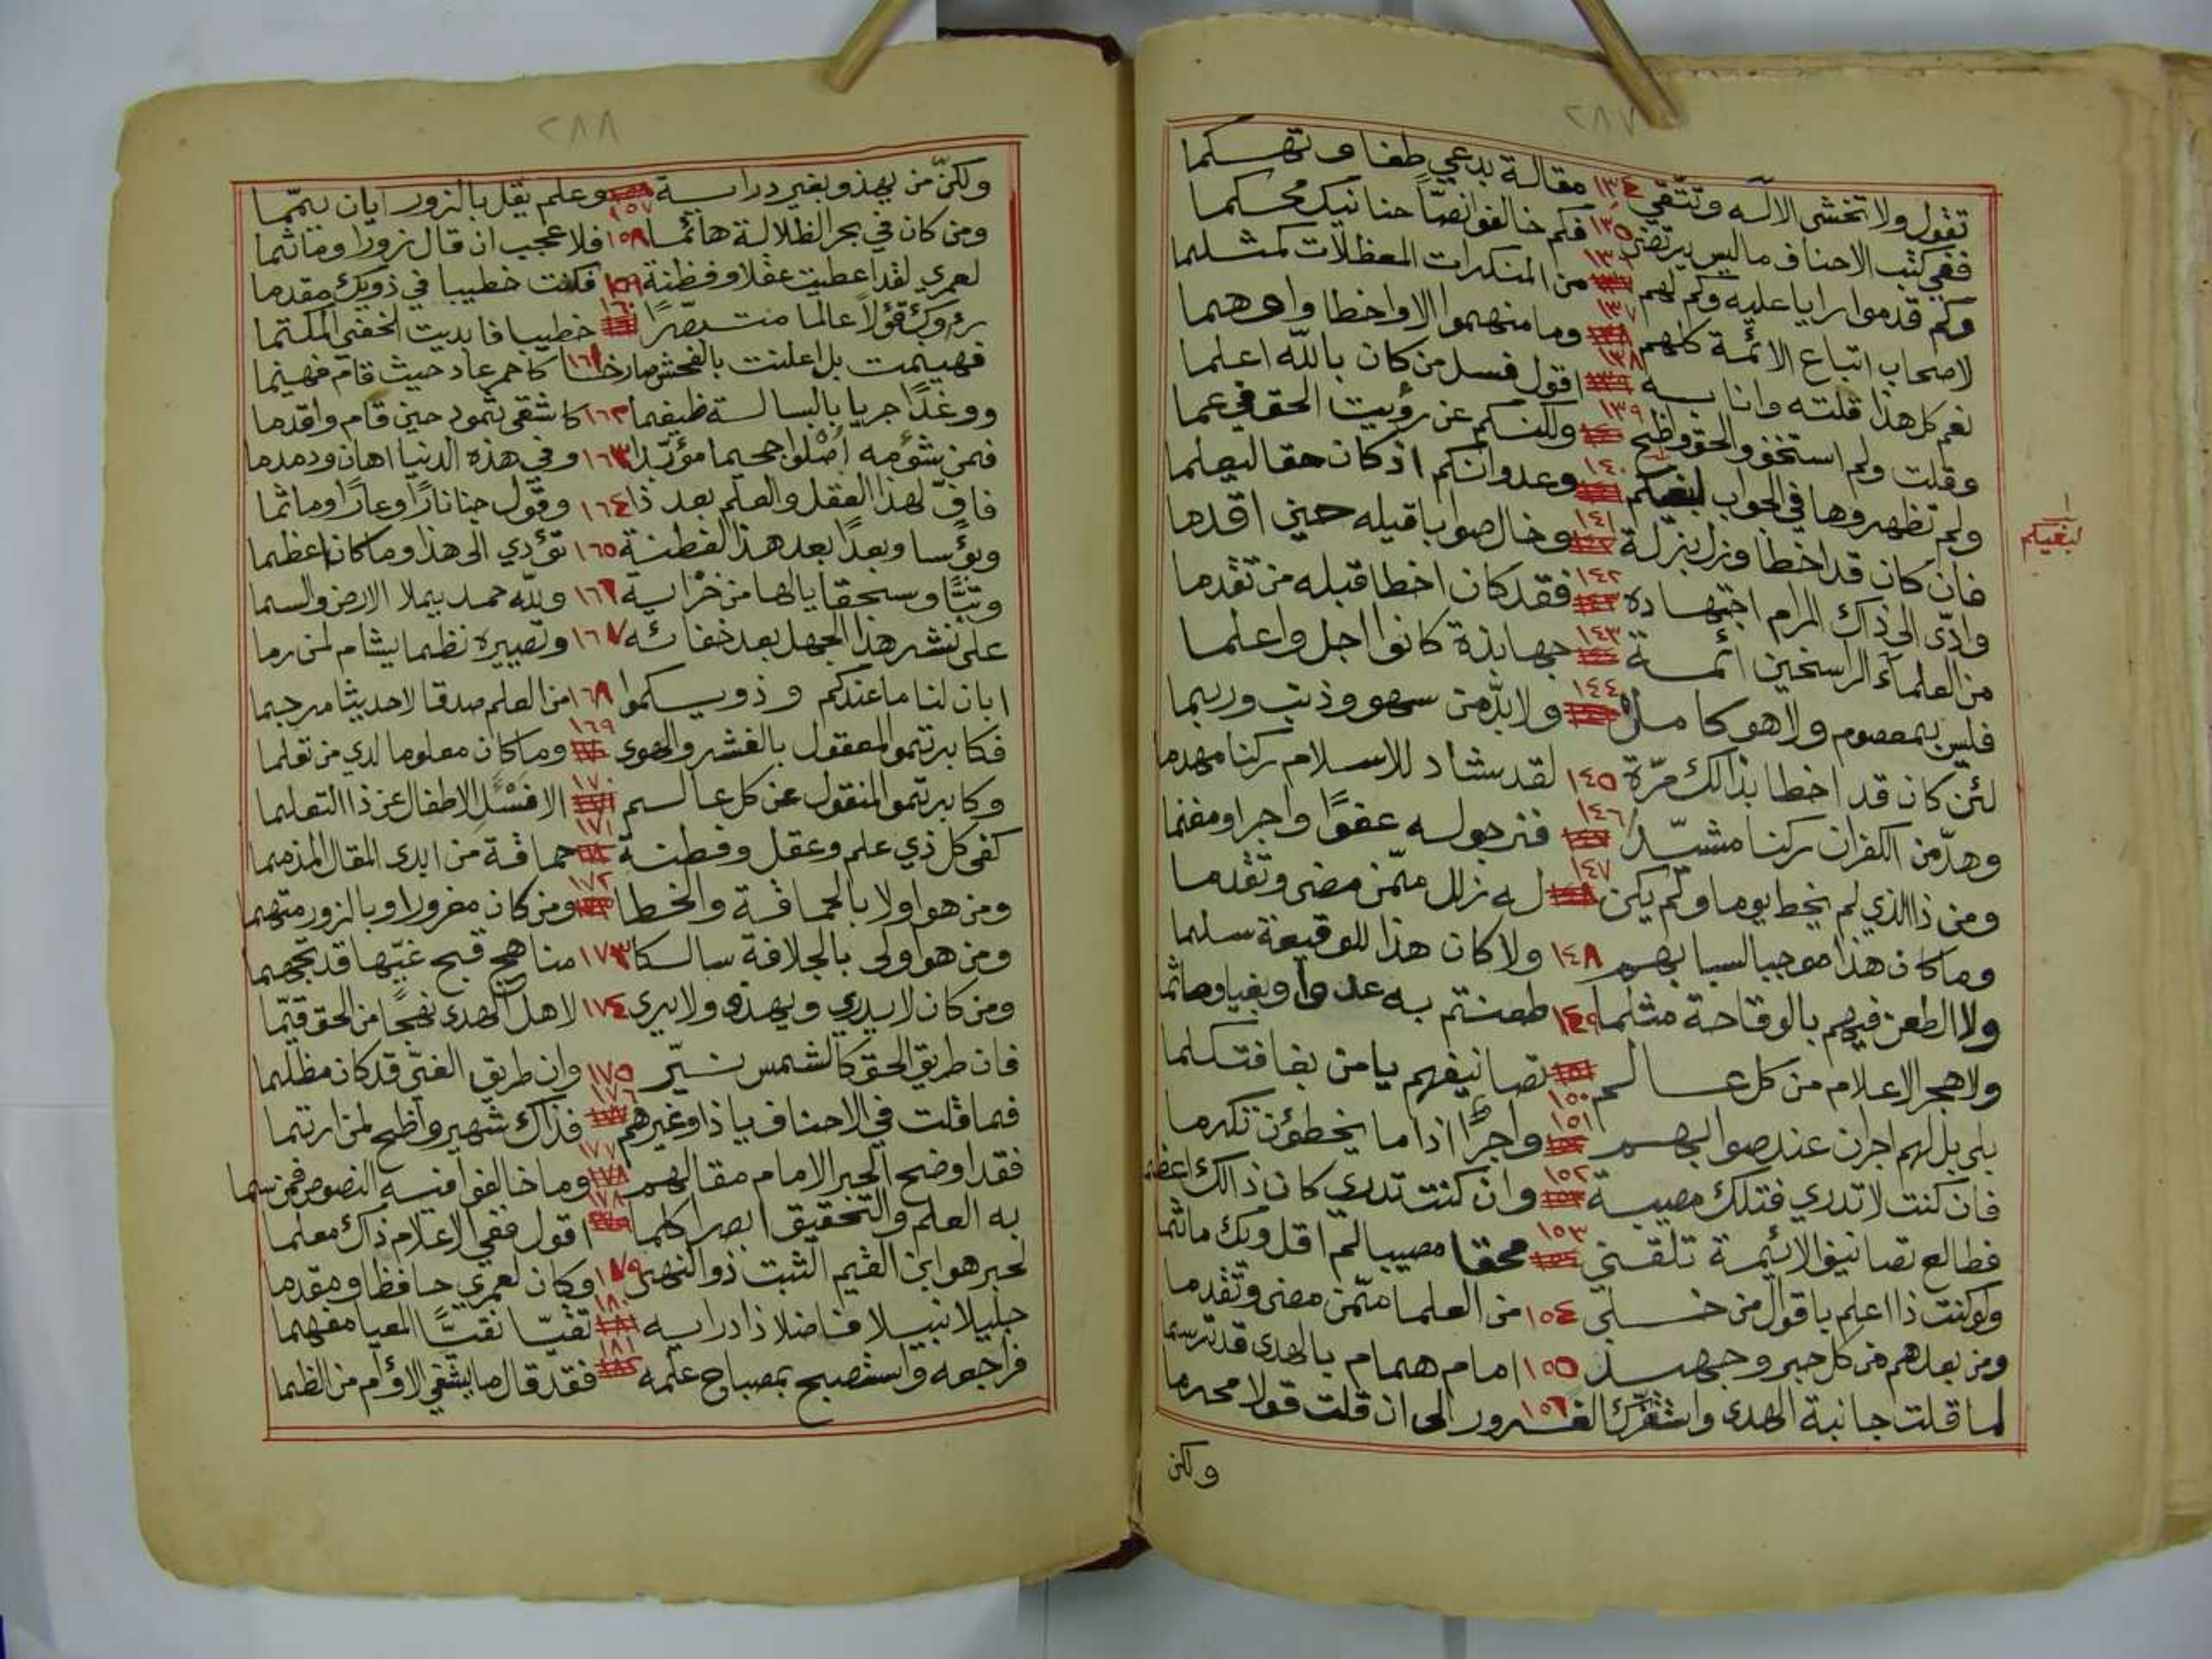 ٢٨٧
تقول ولا تخشى الاله وتتقي ١٣٤ مقالة بدعي طغا وتهكما
ففي كتب الاحناف ما ليس يرتضى ١٣٥ فكم خالفوا نصّاً حنانيك محكما
وكم قدموا رايا عليه وكم لهم ١٣٦ من المنكرات المعظلات كمثلما
لاصحاب اتباع الائمة كلهم ١٣٧ وما منهموا الا واخطا واوهما
نعم كل هذا قلته وانا به ١٣٨ اقول فسل من كان بالله اعلما
وقلت ولم استخف والحق واظح ١٣٩ ولكنكم عن رؤيت الحق في عما
ولم تظهروها في الجواب لبغيكم ١٤٠ وعدوانكم اذ كان حقا ليعلما
لبغيكم
فان كان قد اخطا وزل بزلة ١٤١ وخال صوابا قيله حين اقدما
وادّى الى ذاك المرام اجتهاده ١٤٢ فقد كان اخطا قبله من تقدما
من العلماء الراسخين ائمة ١٤٣ جهابذة كانوا اجل واعلما
فليس بمعصوم ولا هو كاملا ١٤٤ ولا بدّ من سهو وذنب وربما
لئن كان قد اخطا بذالك مرّة ١٤٥ لقد شاد للاسلام ركنا مهدما
وهدّ من الكفران ركنا مشيّدا ١٤٦ فنرجو له عفوًا واجرا ومغنما
ومن ذا الذي لم يخط يوما ولم يكن ١٤٧ له زلل ممّن مضى وتقدما
وما كان هذا موجبا لسبابهم ١٤٨ ولا كان هذا للوقيعة سلما
ولا الطعن فيهم بالوقاحة مثلما ١٤٩ طعنتم به عدوا وبغيا وماثما
ولا هجر الاعلام من كل عالم ١٥٠ تصانيفهم يا من بغا فتكلما
بلى بل لهم اجران عند صوابهم ١٥١ واجرًا اذا ما يخطؤن تكرما
فان كنت لا تدري فتلك مصيبة ١٥٢ وان كنت تدري كان ذالك اعظما
فطالع تصانيف الائيمة تلقني ١٥٣ محقا مصيبا لم اقل ويك ماثما
ولو كنت ذا اعلم باقوال من خلى ١٥٤ من العلما ممّن مضى وتقدما
ومن بعدهم من كل حبر وجهبذ ١٥٥ امام همام بالهدى قد ترسما
لما قلت جانبة الهدى واستفزك الغرور ١٥٦ الى ان قلت قولا محرما
ولكن
٢٨٨
ولكنّ من يهذو بغير دراية ١٥٧ وعلم يقل بالزور ايان يمّما
ومن كان في بحر الظلالة هائما ١٥٨ فلا عجيب ان قال زورًا وماثما
لعمري لقد اعطيت عقلا وفظنة ١٥٩ فكنت خطيبا في ذويك مقدما
١٦٠ خطيبا فابديت الخفي المكتما
فهينمت بل اعلنت بالفحش صارخا ١٦١ كاحمر عاد حيث قام فهينما
ووغدًا جريا بالبسالة ظيغما ١٦٢ كاشقى ثمود حين قام واقدما
فمن شؤمه اصلوا جحيما مؤبّدا ١٦٣ وفي هذه الدنيا اهان ودمدما
فافّ لهذا العقل والعلم بعد ذا ١٦٤ وقول جنا نارًا وعارًا وماثما
وبؤسا وبعدًا بعد هذا الفطنة ١٦٥ تؤدي الى هذا وما كان اعظما
وتبًّا وسحقا يا لها من خزاية ١٦٦ ولله حمد يملا الارض والسما
على نشر هذا الجهل بعد خفائه ١٦٧ وتصييره نظما يشام لمن رما
ابان لنا ما عندكم وذويكموا ١٦٨ من العلم صدقا لا حديثا مرجما
فكابرتموا المعقول بالغشر والهوى ١٦٩ وما كان معلوما لدي من تعلما
وكابرتموا المنقول عن كل عالم ١٧٠ الا فسئل الاطفال عن ذا التعلما
كفى كل ذي علم وعقل وفطنة ١٧١ حماقة من ابدى المقال المذمما
ومن هو اولا بالحماقة والخطا ١٧٢ ومن كان مغرورا وبالزور متهما
ومن هو اولى بالجلافة سالكا ١٧٣ مناهج قبح غبّها قد تجهما
ومن كان لا يدري ويهذو ولا يرى ١٧٤ لاهل الهدى نهجًا من الحق قيّما
فان طريق الحق كالشمس نيّر ١٧٥ وان طريق الغيّ قد كان مظلما
فما قلت في الاحناف يا ذا وغيرهم ١٧٦ فذاك شهير واظح لمن ارتما
فقد اوضح الحبر الامام مقالهم ١٧٧ وما خالفوا فيه النصوص فمن سما
به العلم والتحقيق ابصرا كلما ١٧٨ اقول ففي الاعلام ذاك معلما
لحبر هو ابن القيم الثبت ذو النهى ١٧٩ وكان لعمري حافظا ومقدما
جليلا نبيلا فاضلا ذا درايه ١٨٠ تقيّا نقيًّا المعيا مفهما
فراجعه واستصبح بمصباح علمه ١٨١ فقد قال ما يشفي الاؤام من الظما